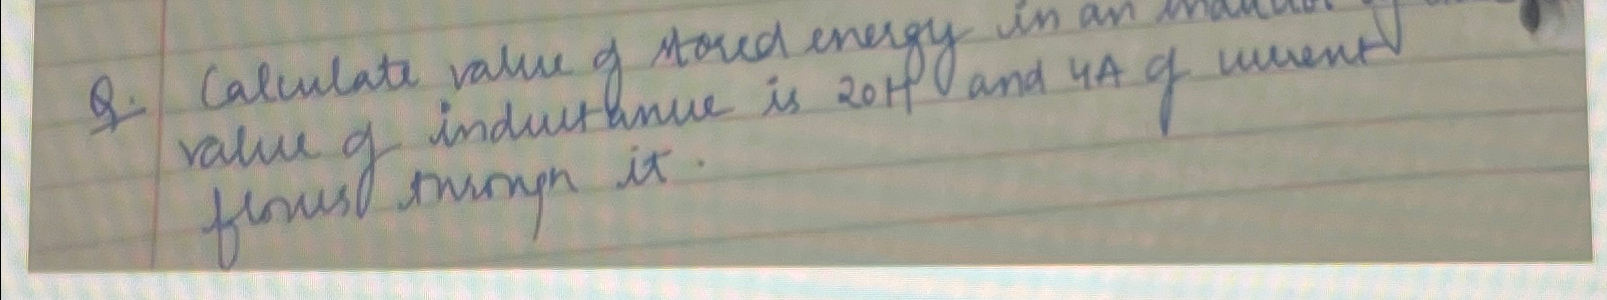 Q. Calculate value of stored energy in an
value of inductance is 20H and 4A of current
flows through it.